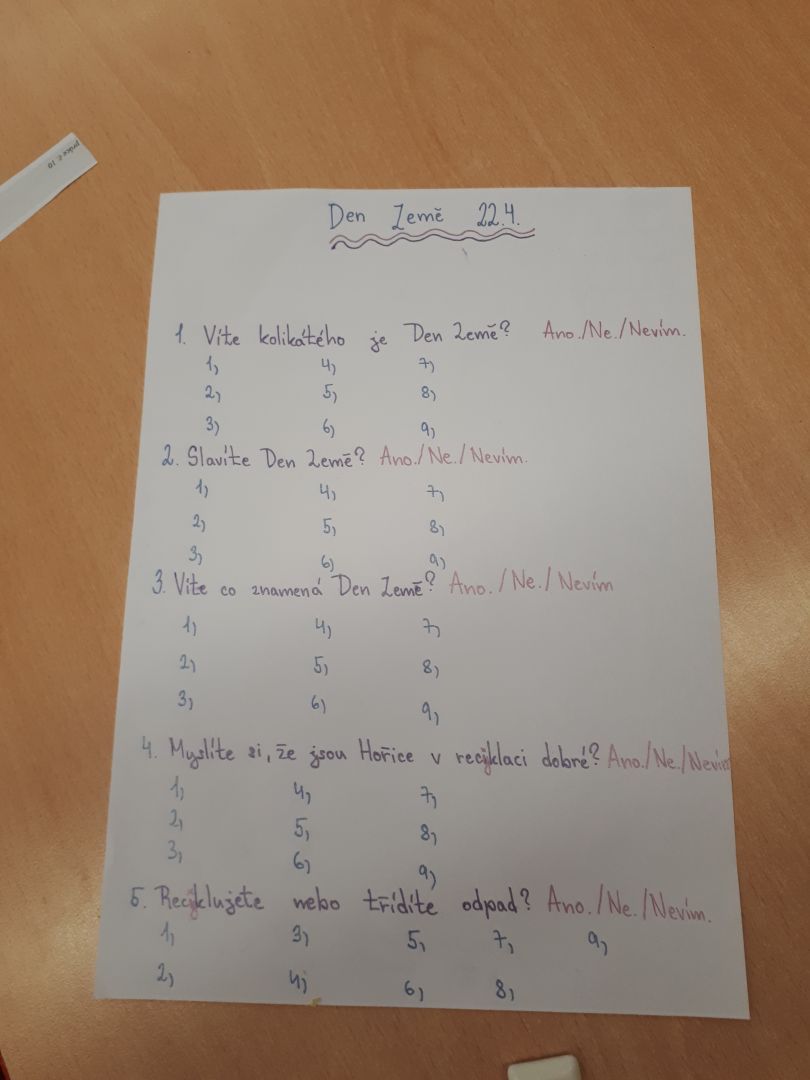 práce č. 10
Den Země 22.4.
1. Víte kolikátého je Den Země? Ano./Ne./Nevím.
1, 4, 7,
2, 5, 8,
3, 6, 9,
2. Slavíte Den Země? Ano./Ne./Nevím.
1, 4, 7,
2, 5, 8,
3, 6, 9,
3. Víte co znamená Den Země? Ano./Ne./Nevím
1, 4, 7,
2, 5, 8,
3, 6, 9,
4. Myslíte si, že jsou Hořice v recyklaci dobré? Ano./Ne./Nevím
1, 4, 7,
2, 5, 8,
3, 6, 9,
5. Recyklujete nebo třídíte odpad? Ano./Ne./Nevím.
1, 3, 5, 7, 9,
2, 4, 6, 8,